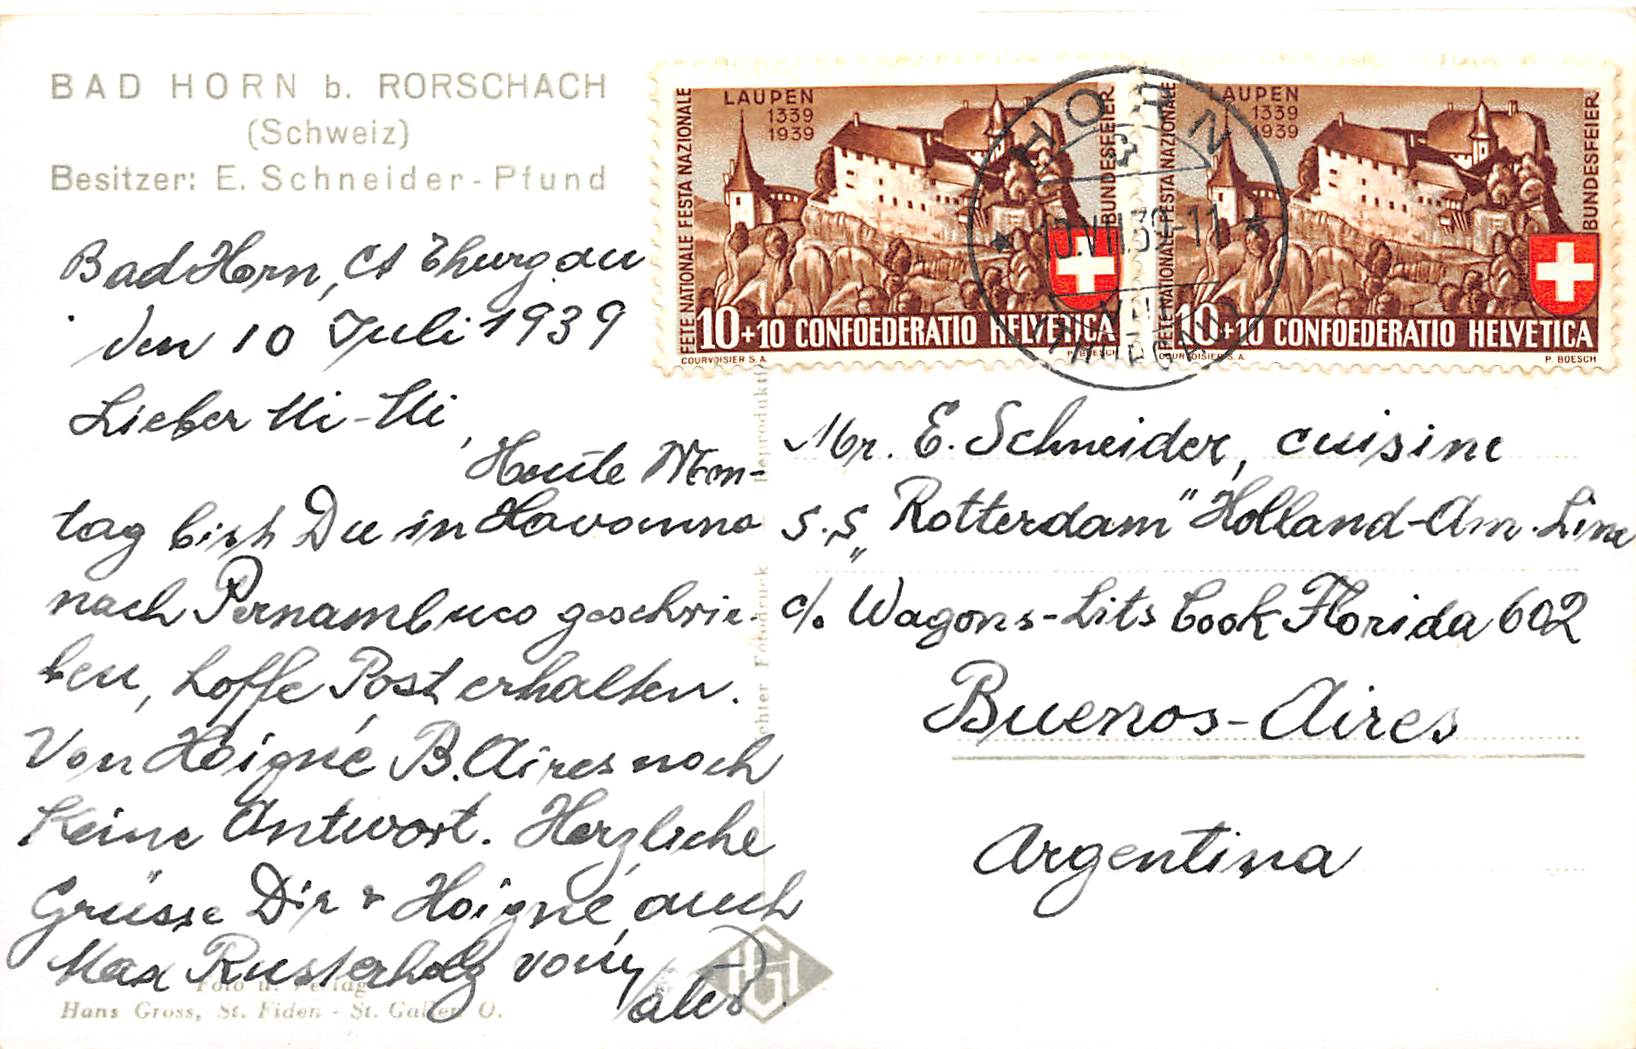 BAD HORN b. RORSCHACH
(Schweiz)
Besitzer: E. Schneider-Pfund
LAUPEN
1339
1939
FÊTE NATIONALE FESTA NAZIONALE
BUNDESFEIER
10+10 CONFOEDERATIO HELVETICA
COURVOISIER S.A.
P. BOESCH
LAUPEN
1339
1939
FÊTE NATIONALE FESTA NAZIONALE
BUNDESFEIER
10+10 CONFOEDERATIO HELVETICA
COURVOISIER S.A.
P. BOESCH
HORN
(THURGAU)
Bad Horn, Ct Thurgau
den 10 Juli 1939
Lieber
Heute Mon-
tag bist Du in Havanna
nach Pernambuco geschrie-
ben, hoffe Post erhalten.
Von Hoigné B. Aires noch
keine Antwort. Herzliche
Grüsse Dir & Hoigné, auch
Max Rusterholz von
Mr. E. Schneider, cuisine
s.s. „Rotterdam" Holland-Am. Line
c/o Wagons-Lits Cook Florida 602
Buenos-Aires
Argentina
Echter Fotodruck Reproduktion
Foto u. Verlag
Hans Gross, St. Fiden - St. Gallen O.